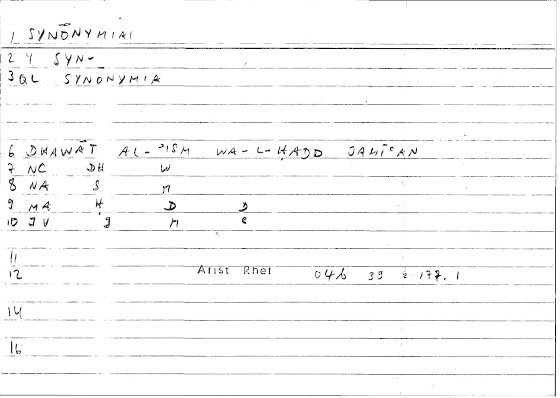 1 SYNŌNYMIAI
2 Y SYN-
3 QL SYNONYMIA
6 DHAWĀT AL-ʾISM WA-L-ḤADD JAMĪʿAN
7 NC DH W
8 NA S M
9 MA Ḥ D D
10 JV J M ʿ
11
12 Arist Rhet 04b 39 177.1
14
16